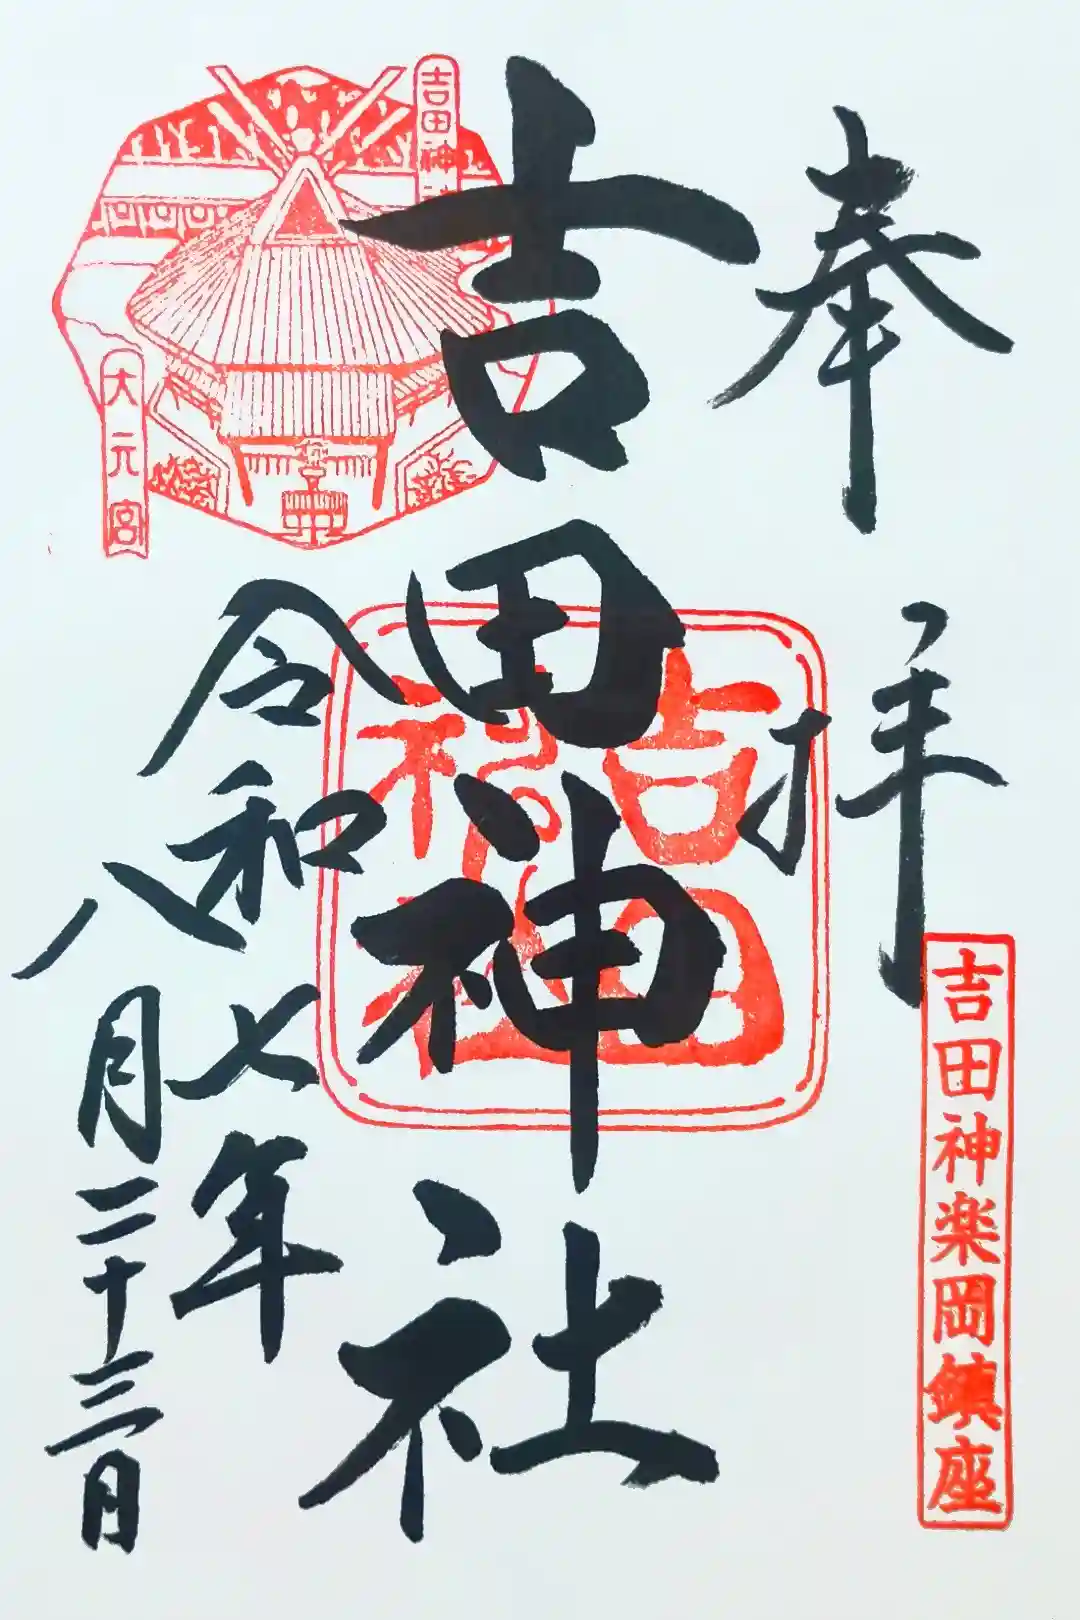 奉拝
吉田神楽岡鎮座
吉田神社
吉田神社
吉田神
大元宮
令和七年
八月二十三日